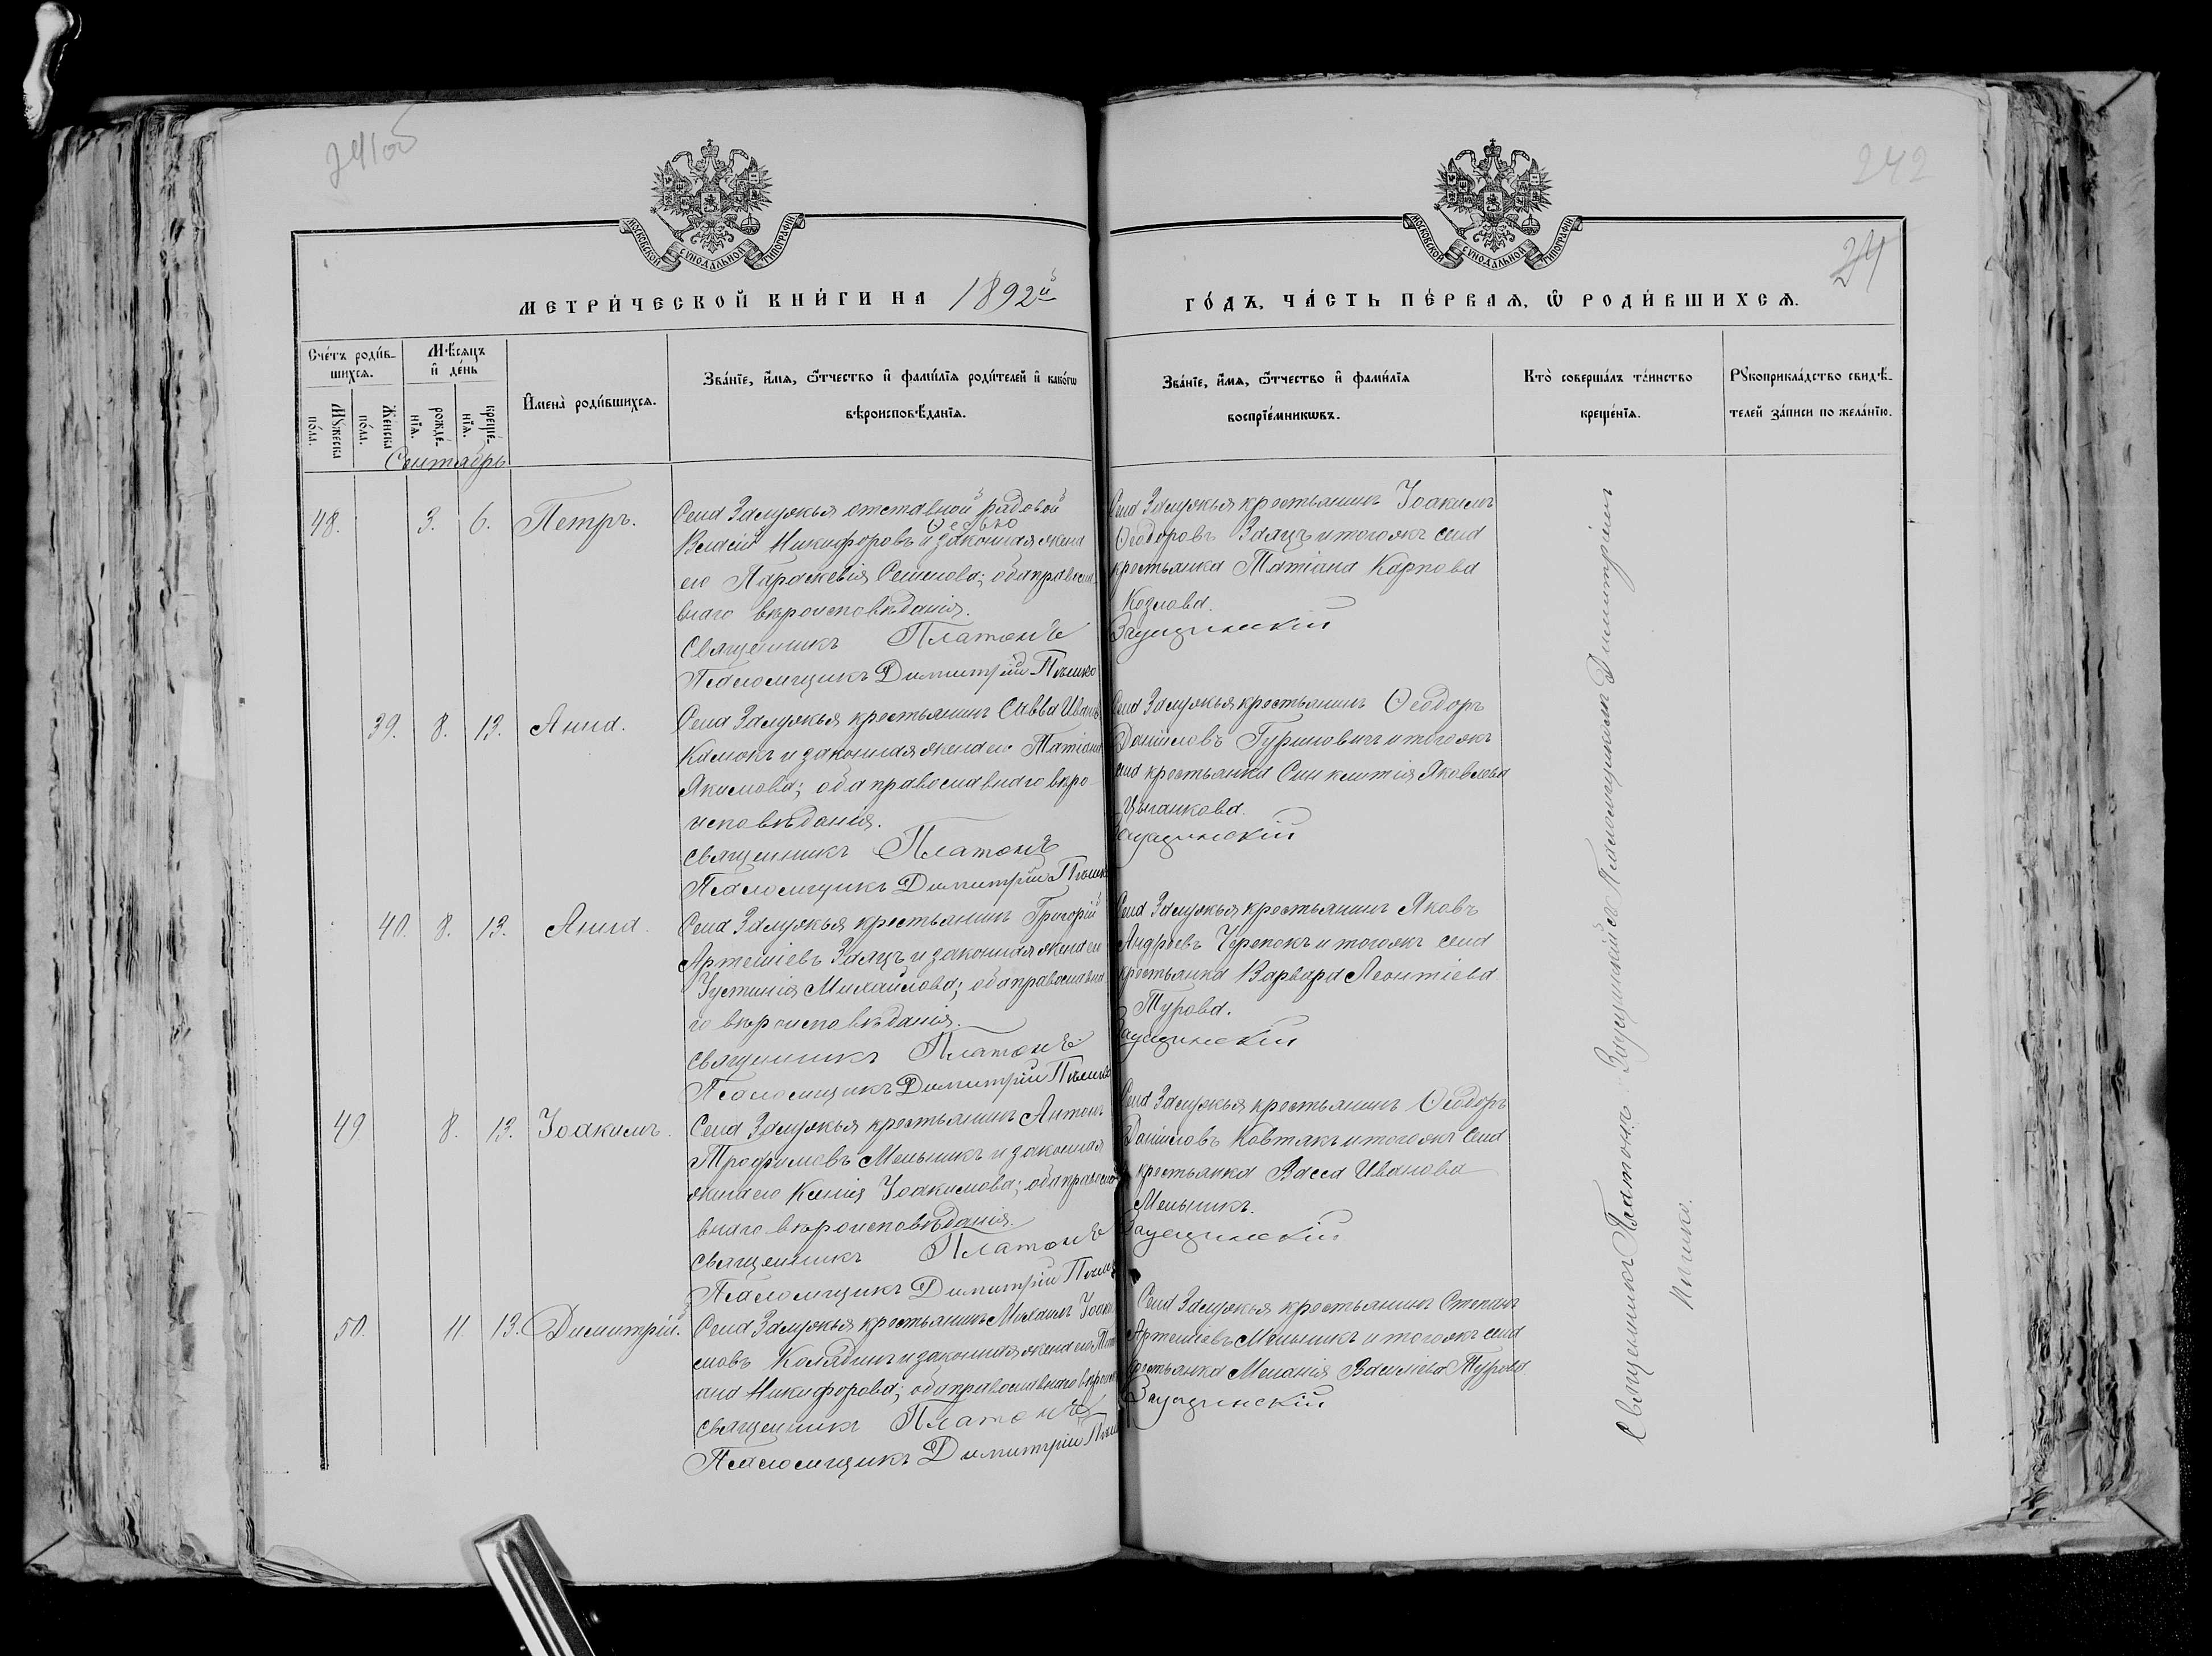 241об
242
24
МОСКОВСКОЙ СѴНОДАЛЬНОЙ ТИПОГРАФІИ
МОСКОВСКОЙ СѴНОДАЛЬНОЙ ТИПОГРАФІИ
МЕТРИ́ЧЕСКОЙ КНИ́ГИ НА 1892й
ГО́ДЪ, ЧА́СТЬ ПЕ́РВАѦ, Ѿ РОДИ́ВШИХСѦ.
Сче́тъ роди́в-
шихсѧ.
Мꙋ́жеска
по́ла.
Же́нска
по́ла.
Мѣ́сѧцъ
и҆ де́нь
рожде́-
нїѧ.
креще́-
нїѧ.
И҆мена̀ роди́вшихсѧ.
Зва́нїе, и҆́мѧ, ѻ҆́тчество и҆ фами́лїѧ роди́телей и҆ како́гѡ
вѣроисповѣ́данїѧ.
Зва́нїе, и҆́мѧ, ѻ҆́тчество и҆ фами́лїѧ
воспрїе́мникѡвъ.
Кто̀ соверша́лъ та́инство
креще́нїѧ.
Рꙋкоприкла́дство свидѣ́-
телей за́писи по жела́нїю.
Сентябрь
48. 3. 6. Петръ.
Села Залужья отставной рядовой
Власій Никифоровъ и законная жена
его Параскевія Семенова; оба правосла-
внаго вѣроисповѣданія.
Священникъ Платонъ
Псаломщикъ Димитрій Пѣшко
Села Залужья крестьянинъ Іоакимъ
Ѳеодоровъ Заяцъ и того же села
крестьянка Татіана Карпова
Козлова.
Заусцинскій
39. 8. 13. Анна.
Села Залужья крестьянинъ Савва Ивановъ
Климокъ и законная жена его Татіана
Якимова; оба православнаго вѣро-
исповѣданія.
Священникъ Платонъ
Псаломщикъ Димитрій Пѣшко
Села Залужья крестьянинъ Ѳеодоръ
Даніиловъ Гуриновичъ и того же
села крестьянка Синклитія Яковлева
Цыганкова.
Заусцинскій
40. 8. 13. Анна.
Села Залужья крестьянинъ Григорій
Артеміевъ Заяцъ и законная жена его
Іустинія Михайлова; оба православна-
го вѣроисповѣданія.
Священникъ Платонъ
Псаломщикъ Димитрій Пѣшко
Села Залужья крестьянинъ Яковъ
Андреевъ Черепокъ и того же села
крестьянка Варвара Леонтіева
Турова.
Заусцинскій
49 8. 13. Іоакимъ.
Села Залужья крестьянинъ Антонъ
Трофимовъ Мельникъ и законная
жена его Ксенія Іоакимова; оба правосла-
внаго вѣроисповѣданія.
Священникъ Платонъ
Псаломщикъ Димитрій Пѣшко
Села Залужья крестьянинъ Ѳеодоръ
Даніиловъ Ковтякъ и того же села
крестьянка Васса Иванова
Мельникъ.
Заусцинскій
50. 11 13. Димитрій.
Села Залужья крестьянинъ Михаилъ Іоаки-
мовъ Колядинъ и законная жена его Тати-
ана Никифорова; оба православнаго вѣроисп
Священникъ Платонъ
Псаломщикъ Димитрій Пѣшко
Села Залужья крестьянинъ Степанъ
Артеміевъ Мельникъ и того же села
крестьянка Меланія Василіева Турова
Заусцинскій
Священникъ Платонъ Заусцинскій съ Псаломщикомъ Димитріемъ
Пѣшко.